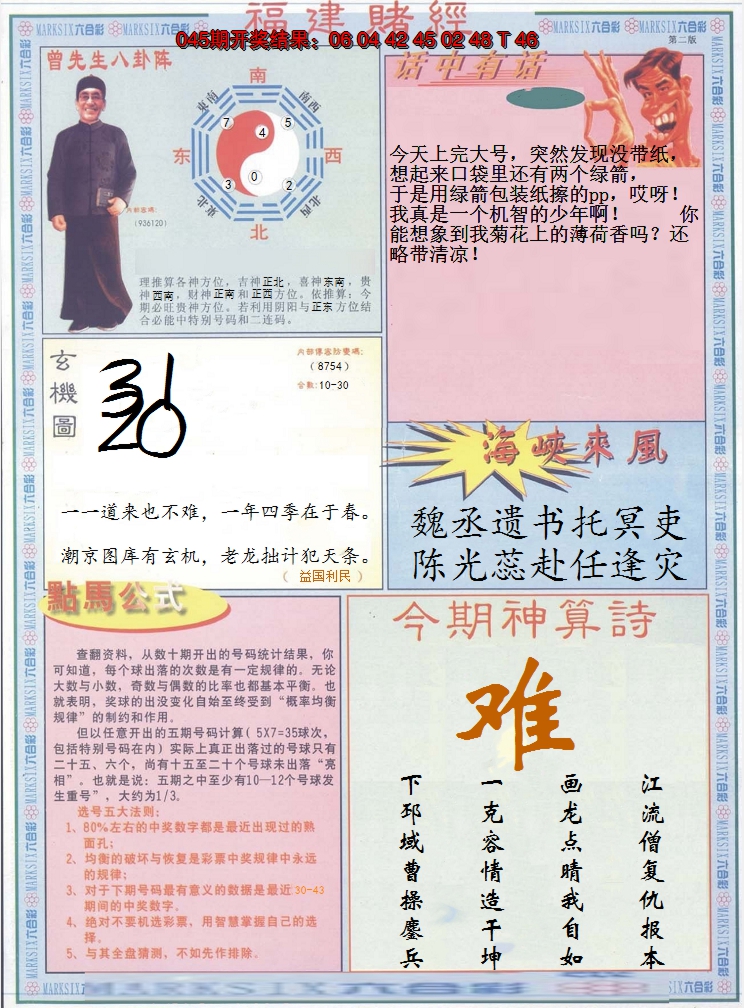 福建賭經
045期开奖结果：06 04 42 45 02 48 T 46
第二版
MARKSIX六合彩
曾先生八卦阵
南
东南
南西
东
西
东北
北西
北
7
4
5
3
0
2
内部密碼:
(936120)
理推算各神方位，吉神正北，喜神东南，贵
神西南，财神正南和正西方位。依推算：今
期必旺贵神方位。若利用阴阳与正东方位结
合必能中特别号码和二连码。
话中有话
今天上完大号，突然发现没带纸，
想起来口袋里还有两个绿箭，
于是用绿箭包装纸擦的pp，哎呀！
我真是一个机智的少年啊！ 你
能想象到我菊花上的薄荷香吗？还
略带清凉！
玄機圖
(8754)
合数:10-30
一一道来也不难，一年四季在于春。
潮京图库有玄机，老龙拙计犯天条。
（ 益国利民 ）
海峡來風
魏丞遗书托冥吏
陈光蕊赴任逢灾
點馬公式
查翻资料，从数十期开出的号码统计结果，你
可知道，每个球出落的次数是有一定规律的。无论
大数与小数，奇数与偶数的比率也都基本平衡。也
就表明，奖球的出没变化自始至终受到“概率均衡
规律”的制约和作用。
但以任意开出的五期号码计算( 5X7=35球次，
包括特别号码在内）实际上真正出落过的号球只有
二十五、六个，尚有十五至二十个号球未出落“亮
相”。也就是说：五期之中至少有10—12个号球发
生重号”，大约为1/3。
选号五大法则:
1、80%左右的中奖数字都是最近出现过的熟
面孔;
2、均衡的破坏与恢复是彩票中奖规律中永远
的规律;
3、对于下期号码最有意义的数据是最近30-43
期间的中奖数字。
4、绝对不要机选彩票，用智慧掌握自己的选
择。
5、与其全盘猜测，不如先作排除。
今期神算詩
难
江流僧复仇报本
画龙点晴我自如
一克容情造干坤
下邳城曹操鏖兵